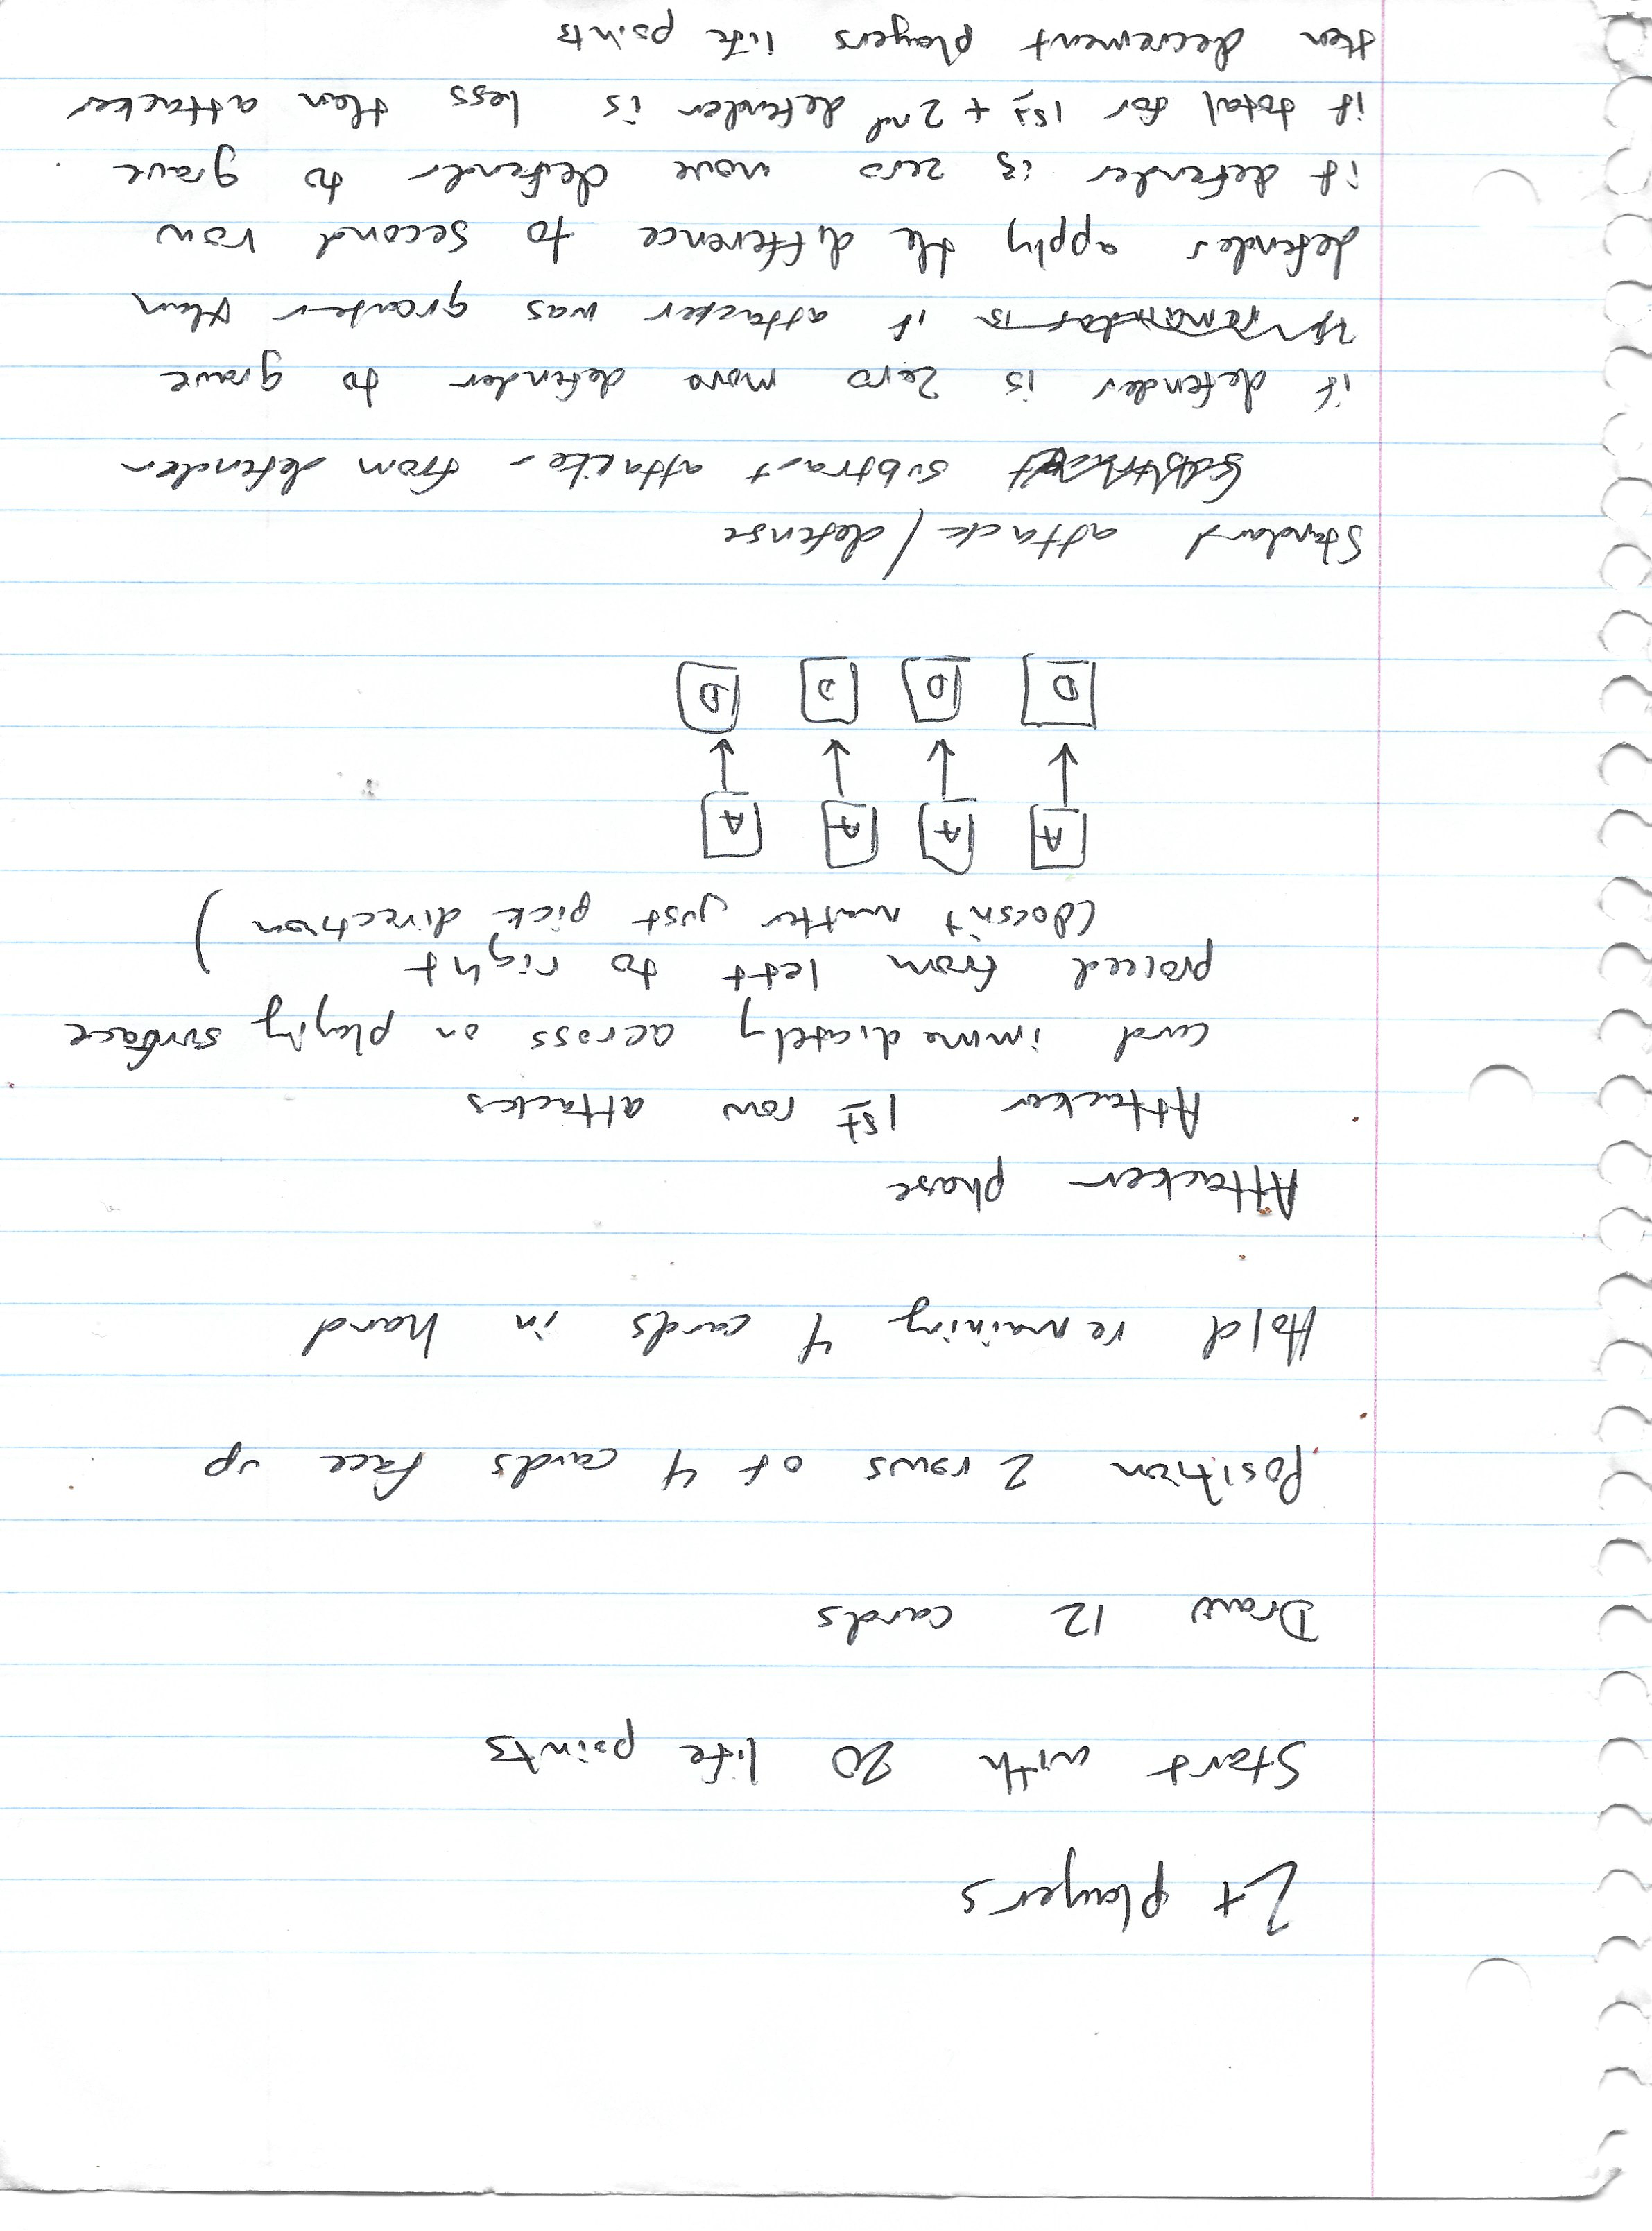 2+ players
Start with 20 life points
Draw 12 cards
Position 2 rows of 4 cards face up
Hold remaining 4 cards in hand
Attacker phase
Attacker 1st row attacks
card immediately across on playing surface
proceed from left to right
(doesn't matter just pick direction)
A A A A
D D D D
Standard attack / defense
subtract attacker from defender
if defender is zero move defender to grave
if remainder is if attacker was greater than
defender apply the difference to second row
if defender is zero move defender to grave
if total for 1st + 2nd defender is less than attacker
then decrement players life points